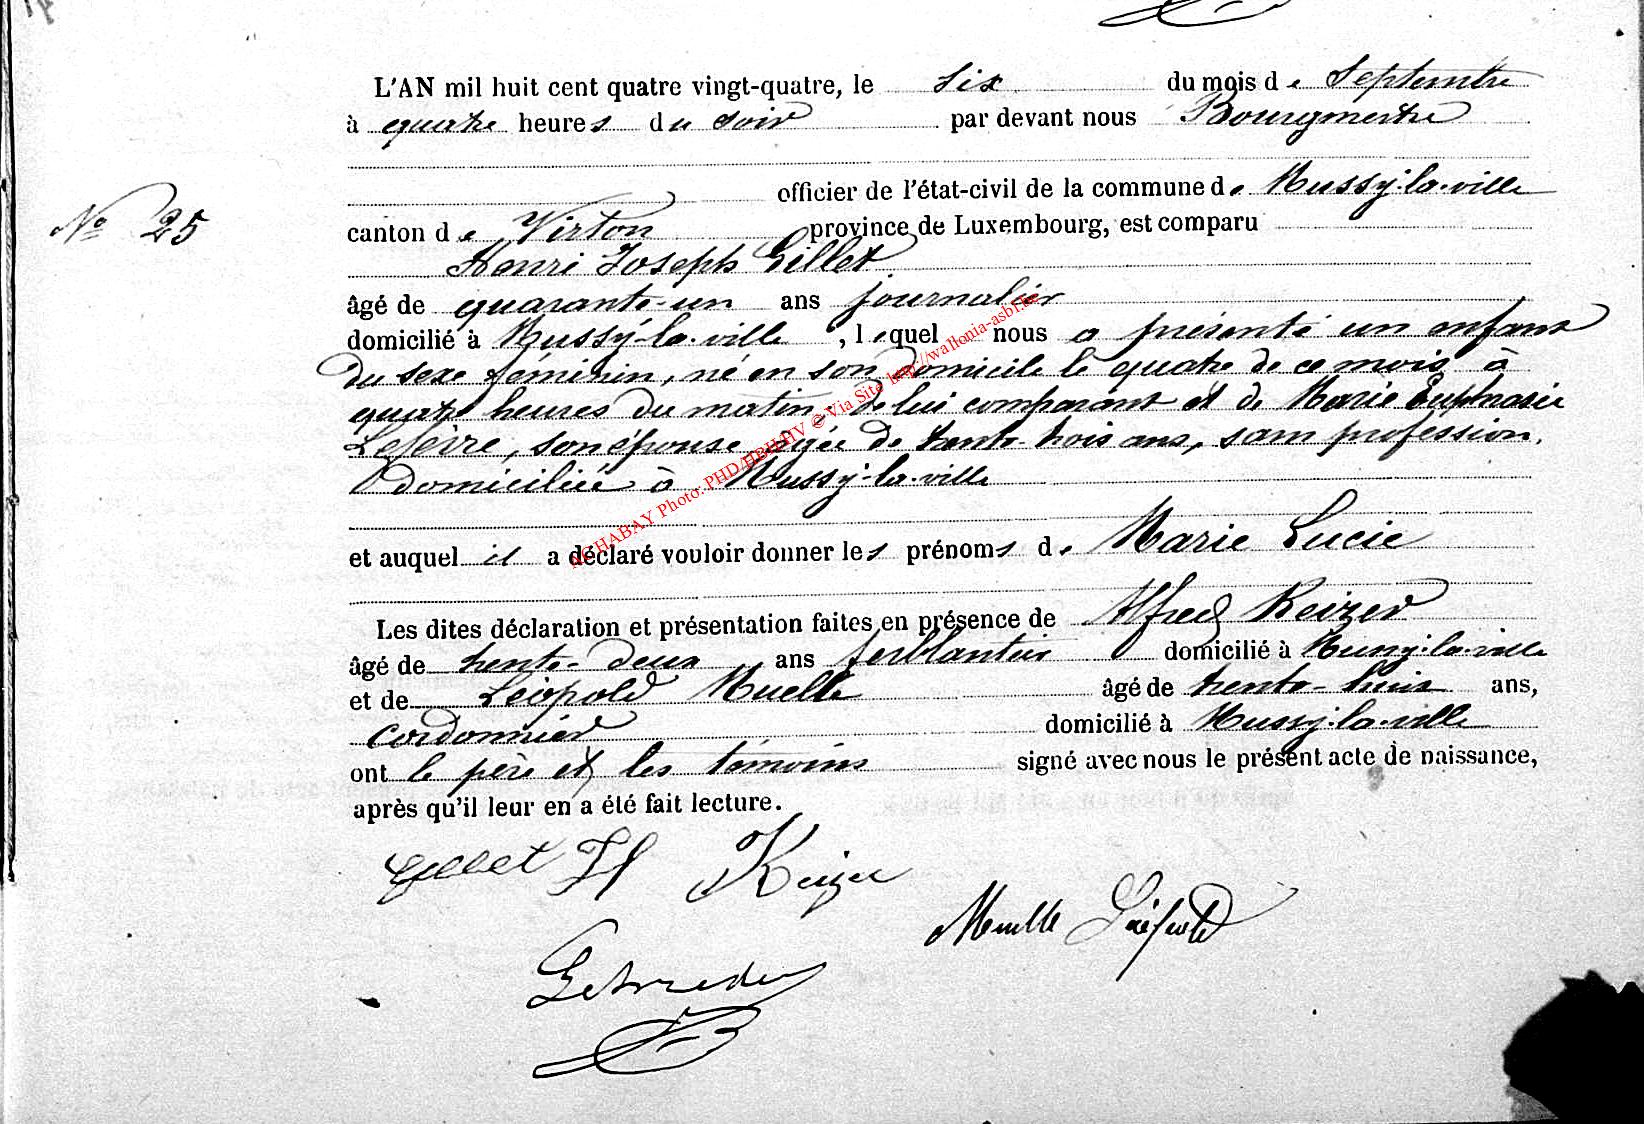 L'AN mil huit cent quatre vingt-quatre, le six du mois de Septembre
à quatre heures du soir par devant nous Bourgmestre
officier de l'état-civil de la commune de Mussy-la-ville
N° 25
canton de Virton province de Luxembourg, est comparu
Henri Joseph Gillet
âgé de quarante-un ans journalier
domicilié à Mussy-la-ville, lequel nous a présenté un enfant
du sexe féminin, né en son domicile le quatre de ce mois à
quatre heures du matin, de lui comparant et de Marie Euphrasie
Lefèvre, son épouse âgée de trente-trois ans, sans profession,
domiciliée à Mussy-la-ville
et auquel il a déclaré vouloir donner les prénoms de Marie Lucie
Les dites déclaration et présentation faites en présence de Alfred Keizer
âgé de trente-deux ans ferblantier domicilié à Mussy-la-ville
et de Léopold Muelle âgé de trente-huit ans,
cordonnier domicilié à Mussy-la-ville
ont le père et les témoins signé avec nous le présent acte de naissance,
après qu'il leur en a été fait lecture.
Gillet HJ Keizer
Muelle Léopold
ACHABAY Photo: PHD/HBH/HV © Via Site http://wallonia-asbl.be